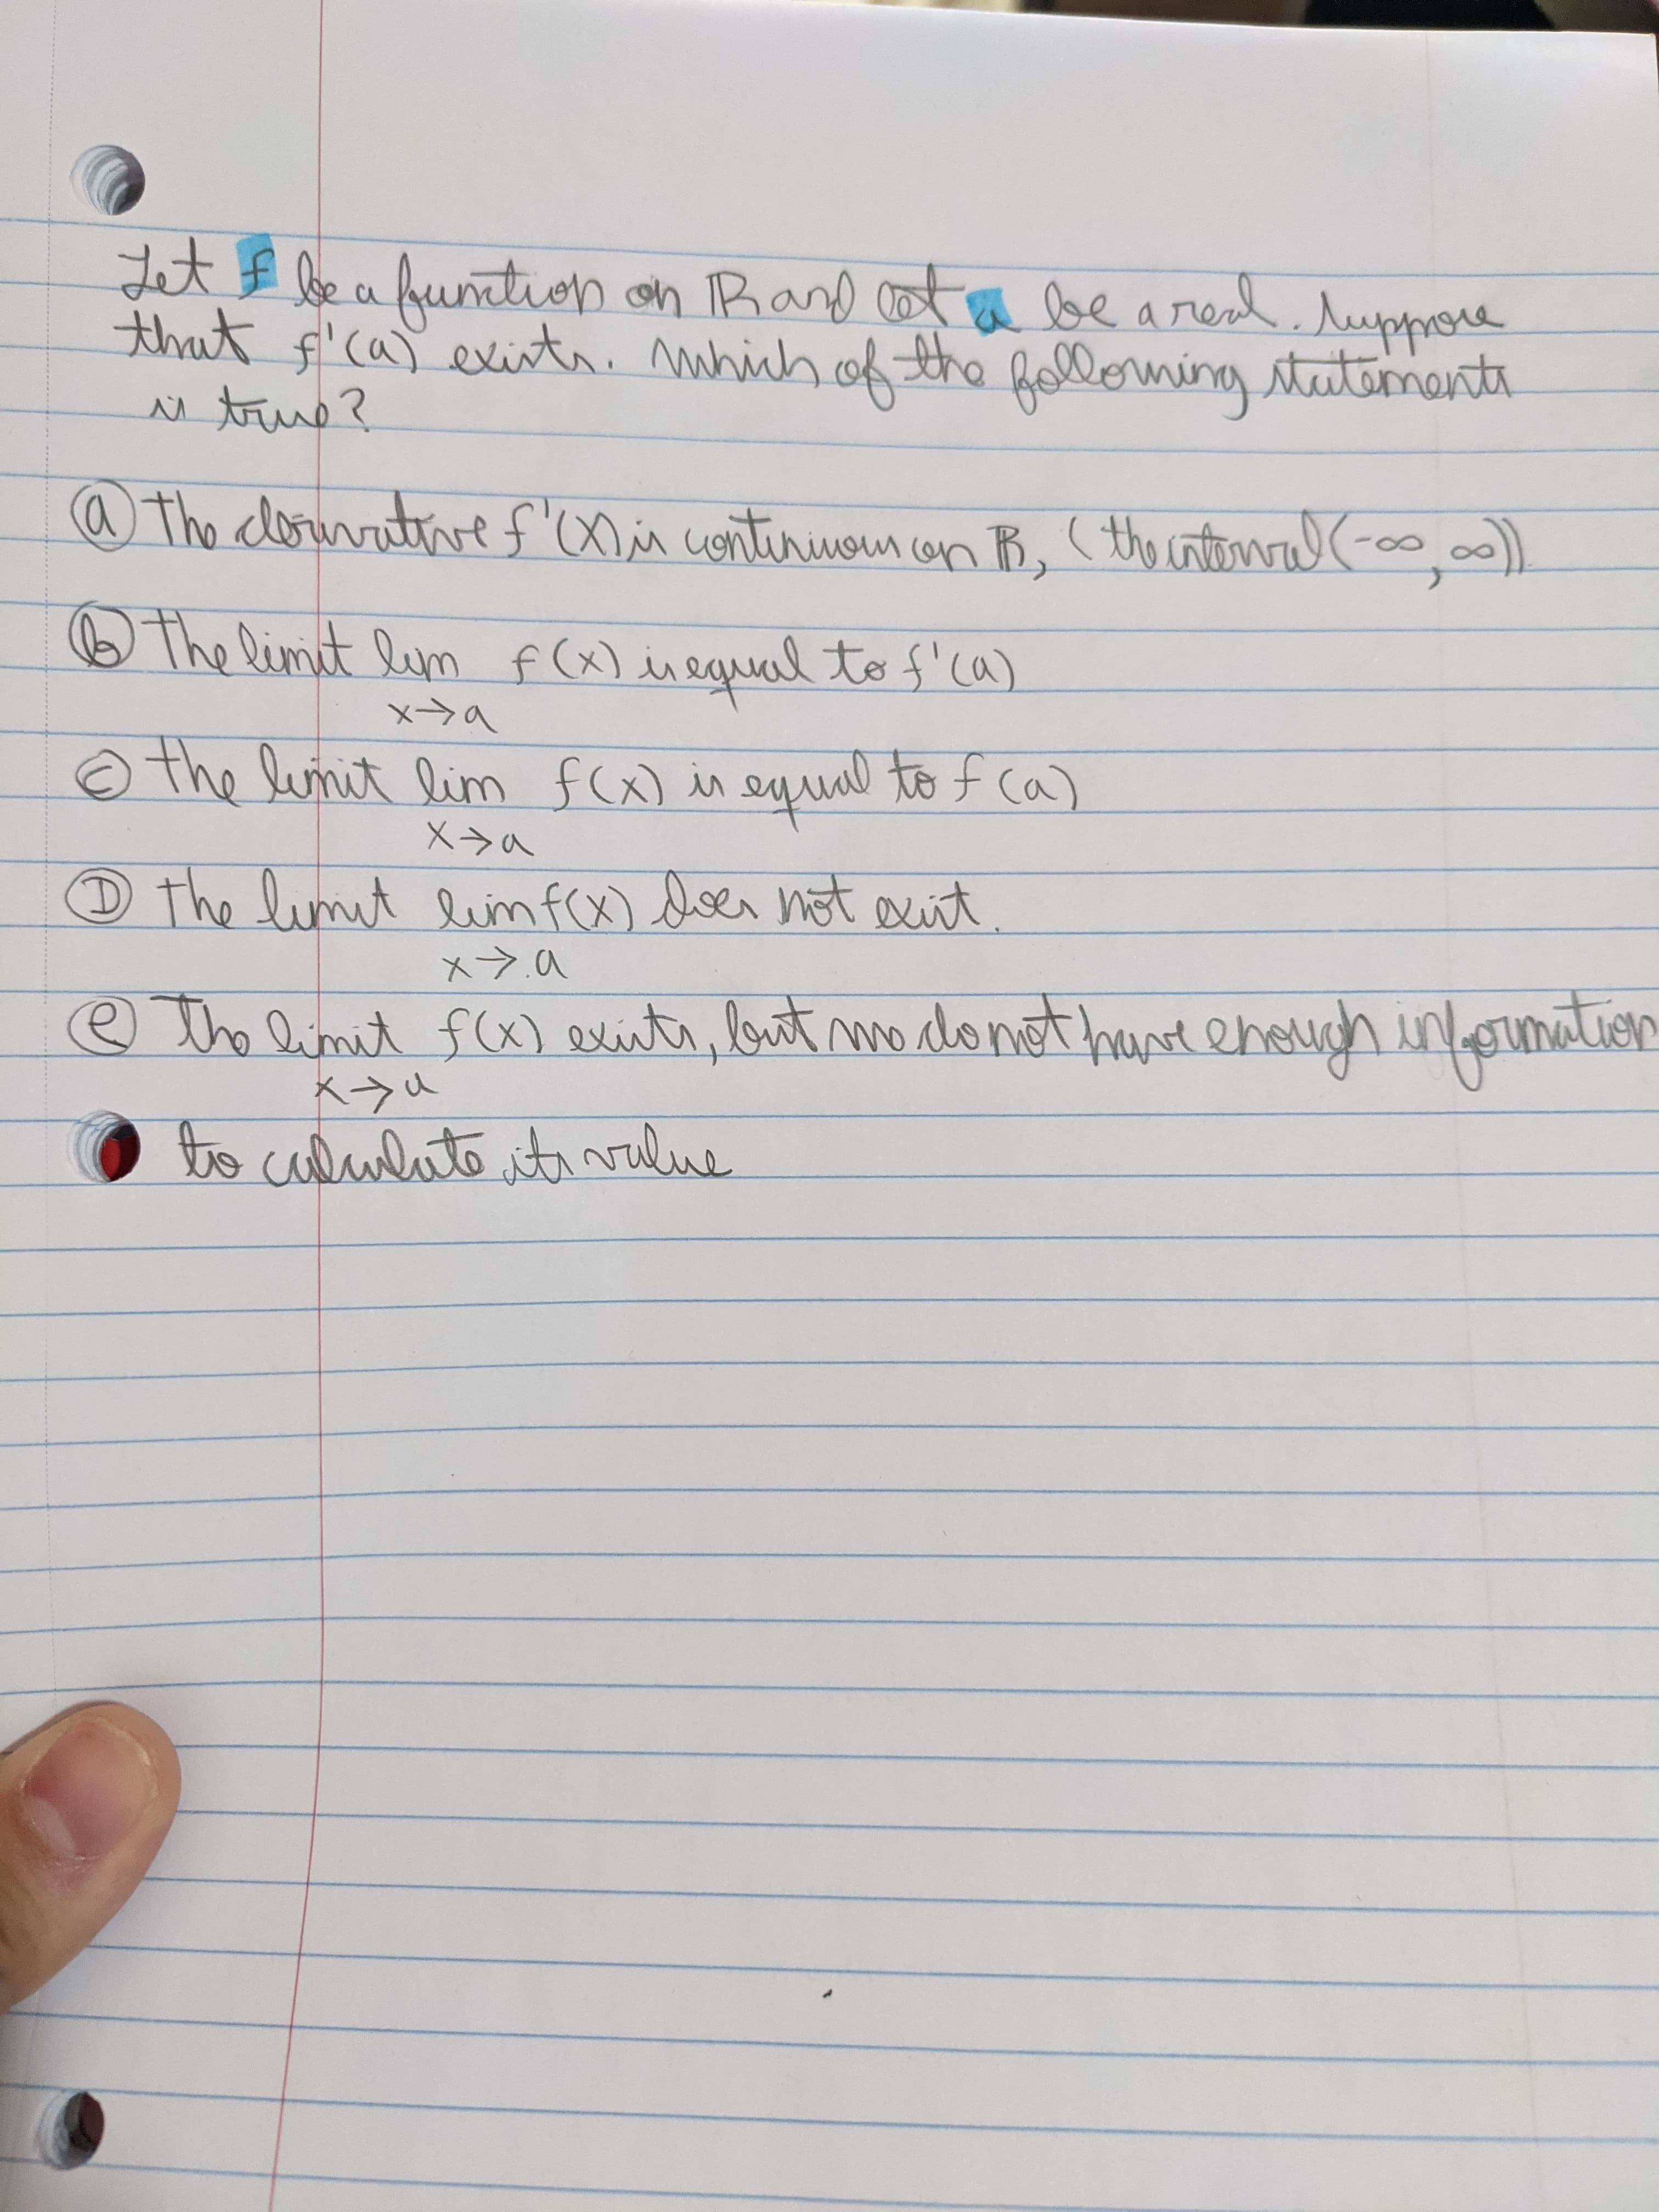 Let f be a function on ℝ and let a be a real. Suppose
that f'(a) exists. Which of the following statements
is true?
ⓐ The derivative f'(x) is continuous on ℝ, (the interval (-∞, ∞))
ⓑ The limit lim f(x) is equal to f'(a)
x→a
ⓒ The limit lim f(x) is equal to f(a)
x→a
Ⓓ The limit lim f(x) does not exist.
x→a
ⓔ The limit f(x) exists, but we do not have enough information
x→a
to calculate its value